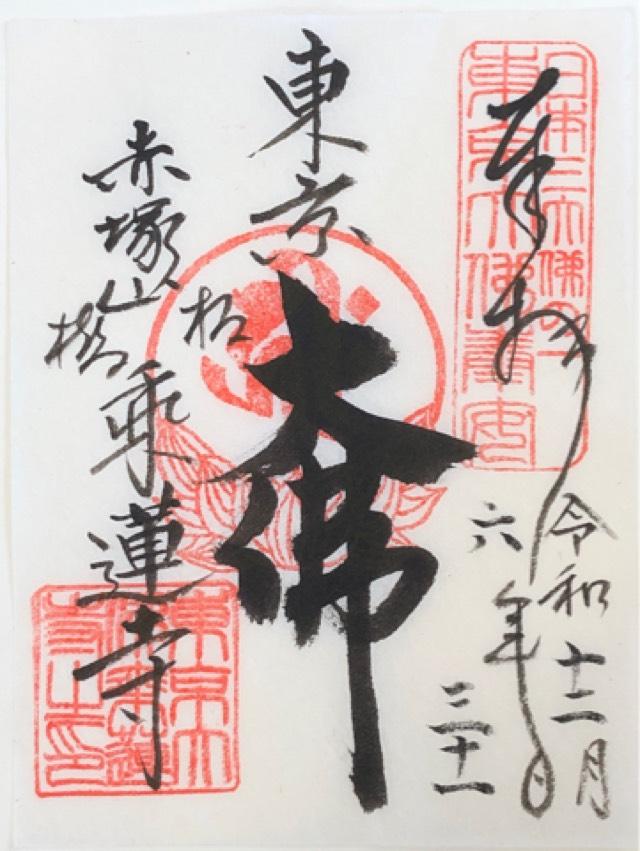 日本三大佛の一
東京大佛奉安
奉拝
令和六年
十二月三十一日
東京
大佛
板橋
赤塚山
乗蓮寺
東京大
佛乗蓮
寺之印